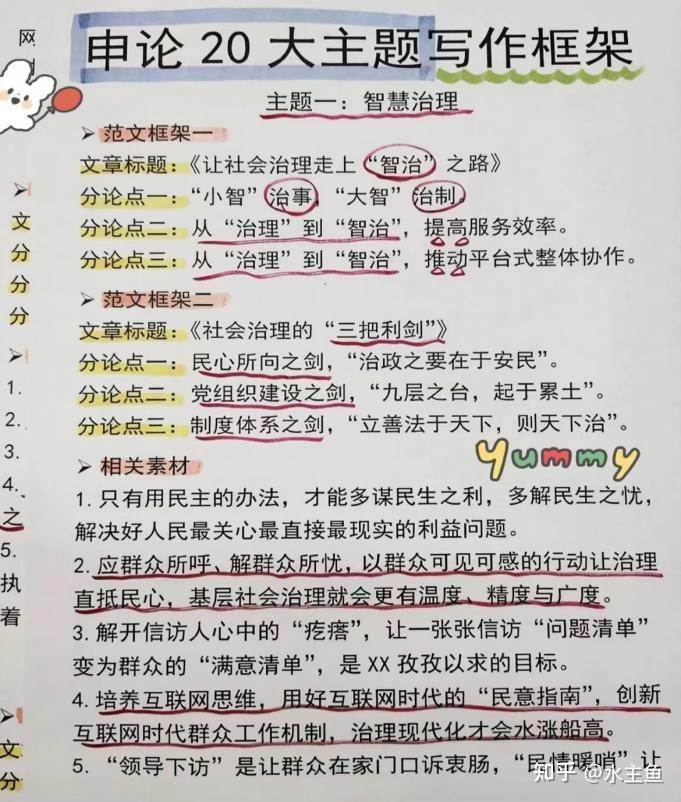 申论 20 大主题写作框架
主题一：智慧治理
➢ 范文框架一
文章标题：《让社会治理走上“智治”之路》
分论点一：“小智”治事，“大智”治制。
分论点二：从“治理”到“智治”，提高服务效率。
分论点三：从“治理”到“智治”，推动平台式整体协作。
➢ 范文框架二
文章标题：《社会治理的“三把利剑”》
分论点一：民心所向之剑，“治政之要在于安民”。
分论点二：党组织建设之剑，“九层之台，起于累土”。
分论点三：制度体系之剑，“立善法于天下，则天下治”。
yummy
➢ 相关素材
1. 只有用民主的办法，才能多谋民生之利，多解民生之忧，
解决好人民最关心最直接最现实的利益问题。
2. 应群众所呼、解群众所忧，以群众可见可感的行动让治理
直抵民心，基层社会治理就会更有温度、精度与广度。
3. 解开信访人心中的“疙瘩”，让一张张信访“问题清单”
变为群众的“满意清单”，是 XX 孜孜以求的目标。
4. 培养互联网思维，用好互联网时代的“民意指南”，创新
互联网时代群众工作机制，治理现代化才会水涨船高。
5. “领导下访”是让群众在家门口诉衷肠，“民情暖哨”让
知乎 @水主鱼
网
➢
文
分
分
分
➢
1.
2.
3.
4.
之
5.
执
着
➢
文
分